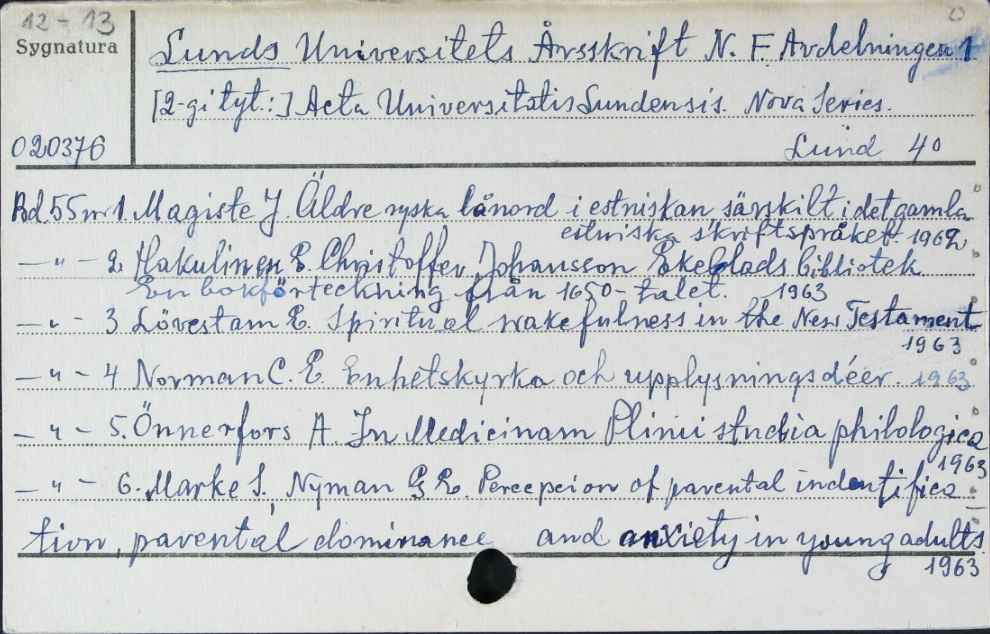 12-13
Sygnatura
Lunds Universitets Årsskrift N. F. Avdelningen 1
[2-gi tyt.:] Acta Universitatis Lundensis. Nova Series.
020376
Lund 40
Bd 55 nr 1. Magiste J. Äldre ryska lånord i estniskan särskilt i det gamla
estniska skriftspråket. 1962
— " — 2. Hakulinen E. Christoffer Johansson Ekeblads bibliotek
En bokförteckning från 1650-talet. 1963
— " — 3 Lövestam E. Spiritual wakefulness in the New Testament
1963
— " — 4 Norman C. E. Enhetskyrka och upplysningsdéer. 1963
— " — 5. Önnerfors A. In Medicinam Plinii studia philologica
1963
— " — 6. Marke S., Nyman G E. Percepcion of parental indentifica-
tion, parental dominance and anxiety in young adults.
1963